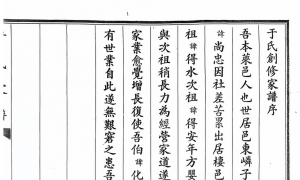 于氏創修家譜序
吾本萊邑人也世居邑東嶙子
諱尚忠因社差苦累出居棲邑
祖諱得水次祖諱得安年方嬰
與次祖稍長力為經營家道遂
家業愈覺增長復使吾伯諱化
有世業自此遂無艱窘之患吾